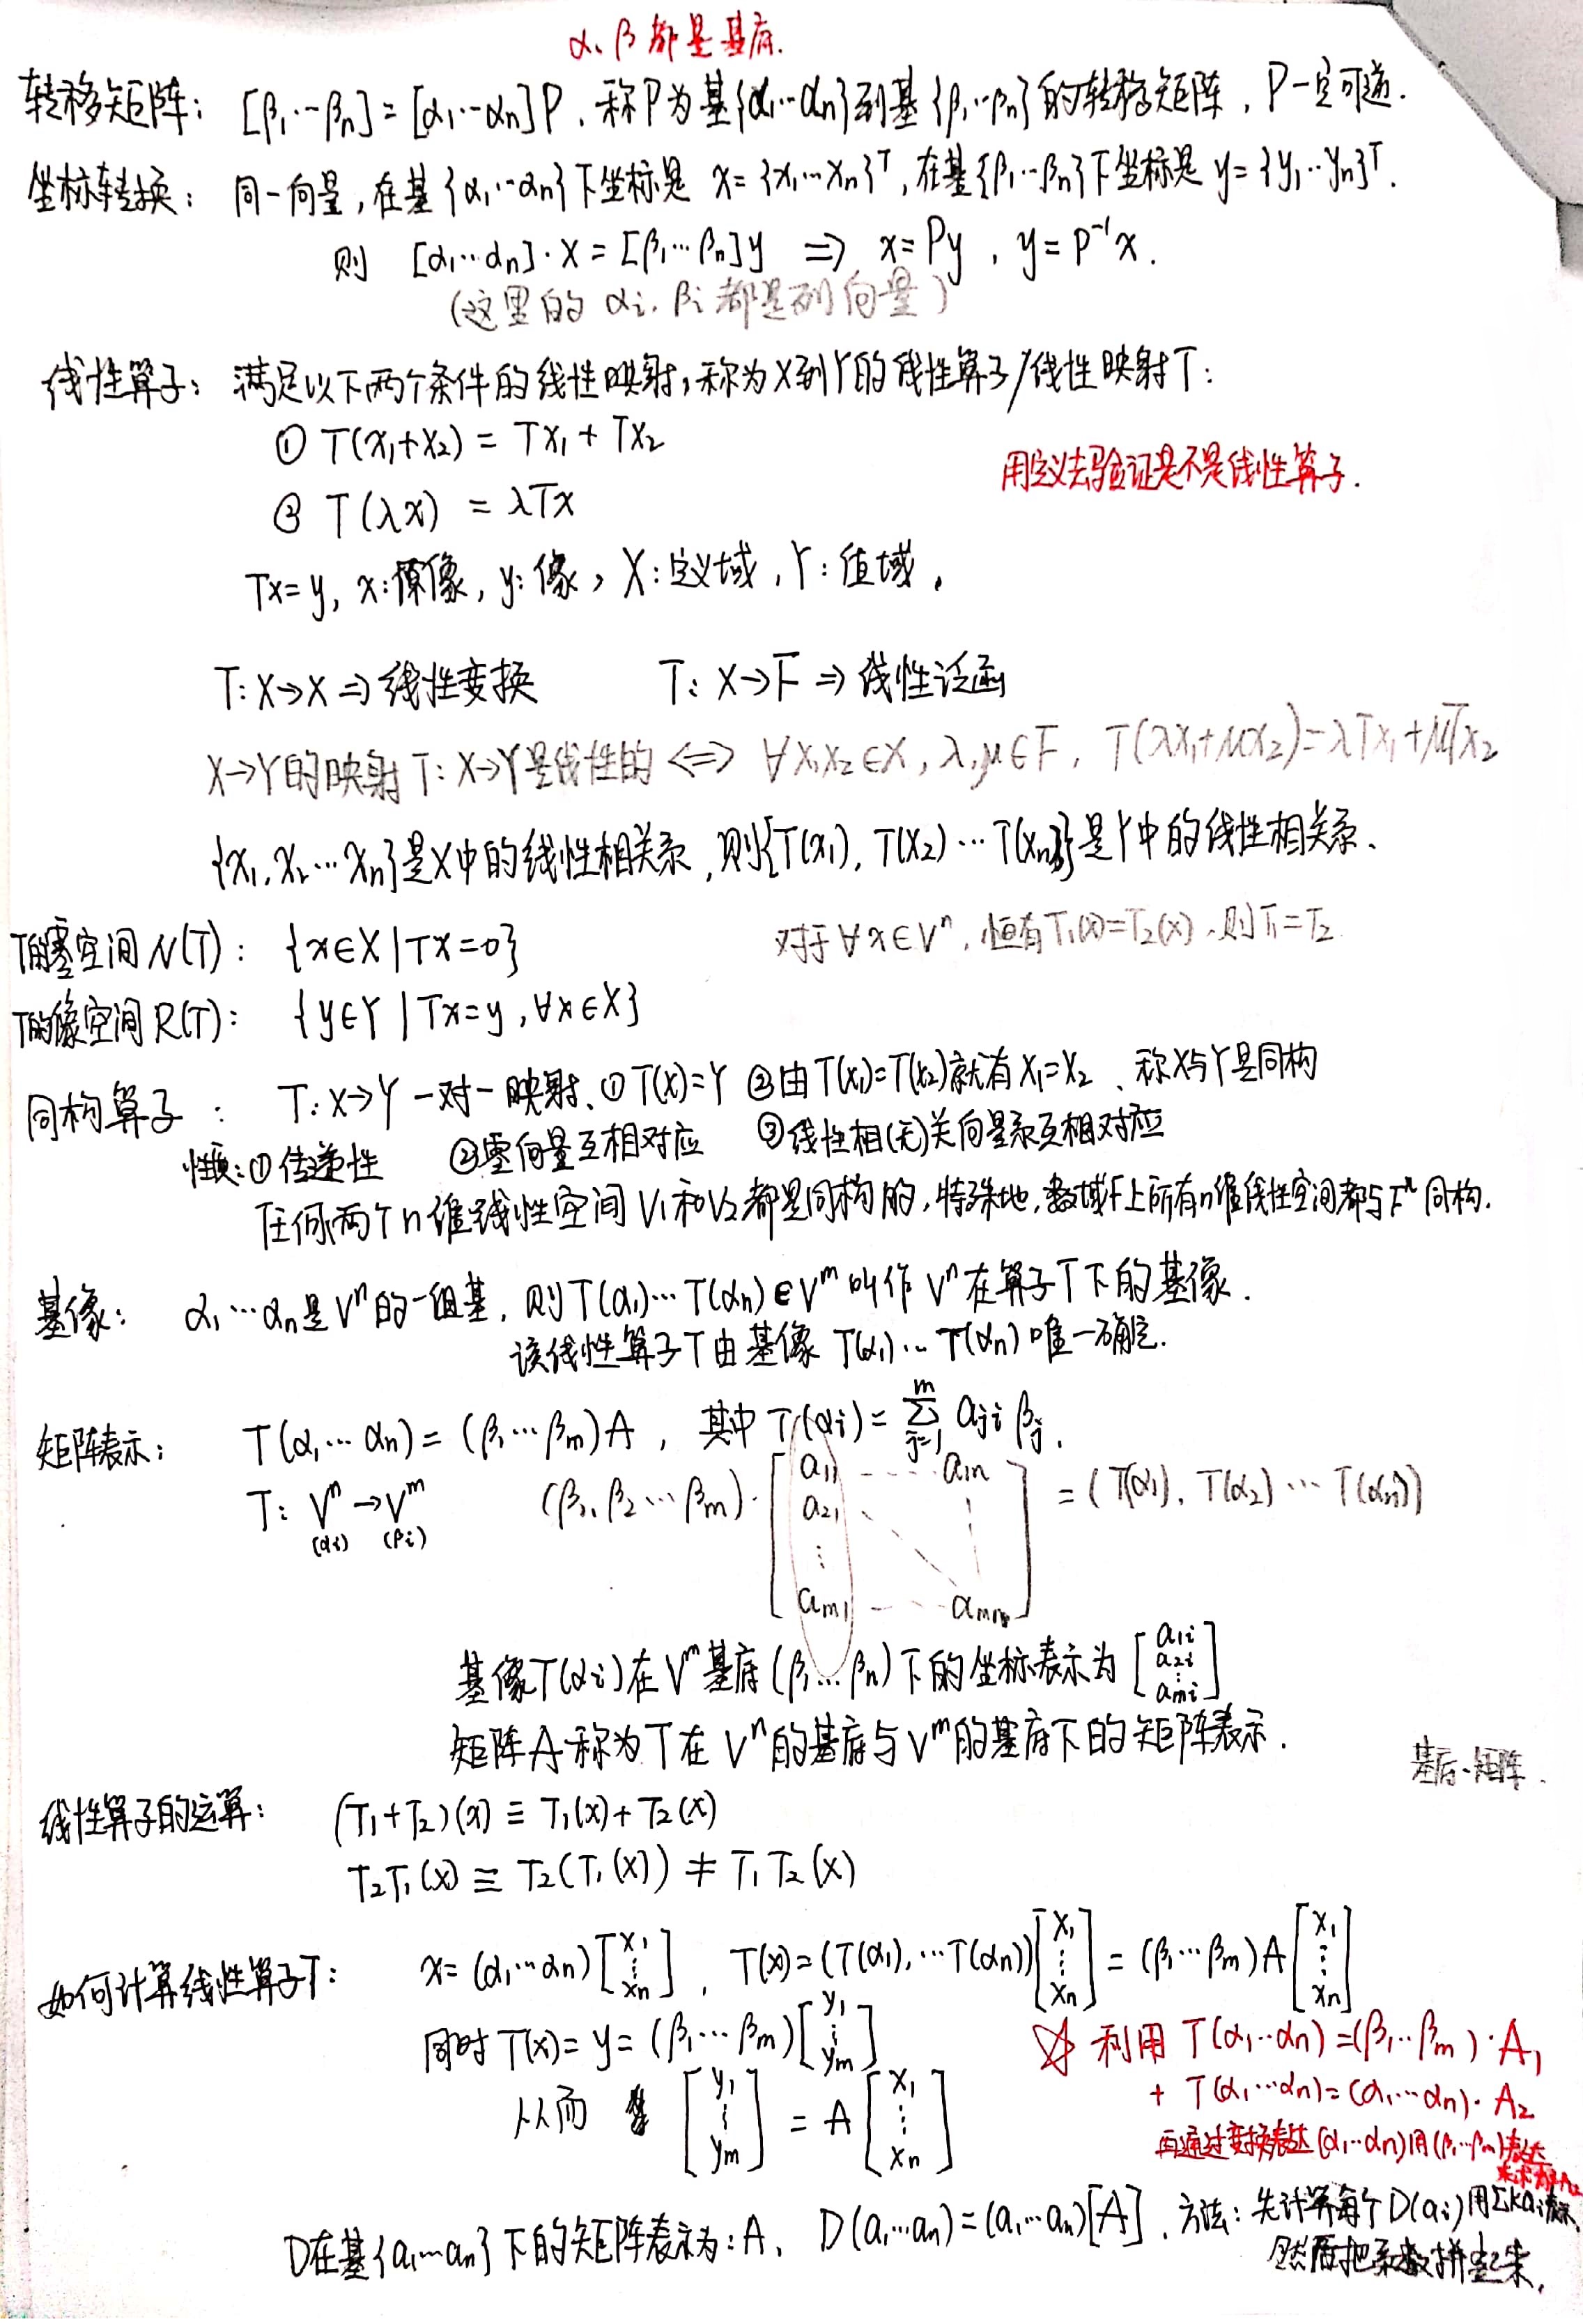 α、β都是基底.
转移矩阵: [β₁…βn]=[α₁…αn]P, 称P为基{α₁…αn}到基{β₁…βn}的转移矩阵, P一定可逆.
坐标转换: 同一向量,在基{α₁…αn}下坐标是 x={x₁…xn}ᵀ,在基{β₁…βn}下坐标是 y={y₁…yn}ᵀ.
则 [α₁…αn]·x=[β₁…βn]y ⇒ x=Py, y=P⁻¹x.
(这里的 αi, βi 都是列向量)
线性算子: 满足以下两个条件的线性映射,称为X到Y的线性算子/线性映射T:
① T(x₁+x₂) = Tx₁ + Tx₂
用定义去验证是不是线性算子.
② T(λx) = λTx
Tx=y, x:原像, y:像, X:定义域, Y:值域.
T: X→X ⇒ 线性变换 T: X→F ⇒ 线性泛函
X→Y的映射 T: X→Y是线性的 ⇔ ∀x₁x₂∈X, λ,μ∈F, T(λx₁+μx₂)=λTx₁+μTx₂
{x₁,x₂…xn}是X中的线性相关系,则{T(x₁), T(x₂)…T(xn)}是Y中的线性相关系.
T的零空间 N(T): {x∈X|Tx=0} 对于∀x∈Vⁿ, 恒有T₁(x)=T₂(x), 则T₁=T₂
T的像空间 R(T): {y∈Y|Tx=y,∀x∈X}
同构算子: T: X→Y 一对一映射. ① T(x)=Y ②由T(x₁)=T(x₂)就有x₁=x₂、称X与Y是同构
性质: ①传递性 ②零向量互相对应 ③线性相(无)关向量系互相对应
任何两个n维线性空间V₁和V₂都是同构的,特殊地,数域F上所有n维线性空间都与Fⁿ同构.
基像: α₁…αn是Vⁿ的一组基, 则T(α₁)…T(αn)∈Vᵐ 叫作 Vⁿ在算子T下的基像.
该线性算子T由基像 T(α₁)…T(αn)唯一确定.
矩阵表示: T(α₁…αn)=(β₁…βm)A, 其中 T(αi)=∑_{j=1}^{m} aji βj.
T: Vⁿ→Vᵐ (αi) (βi) (β₁,β₂…βm)·[a₁₁ --- a₁n a₂₁ ⋮ am₁ -- amn] = (T(α₁), T(α₂)…T(αn))
基像T(αi)在Vᵐ基底(β₁…βn)下的坐标表示为 [a₁i a₂i ⋮ ami]
矩阵A称为T在Vⁿ的基底与Vᵐ的基底下的矩阵表示.
基底-矩阵.
线性算子的运算: (T₁+T₂)(x)≡T₁(x)+T₂(x)
T₂T₁(x)≡T₂(T₁(x))≠T₁T₂(x)
如何计算线性算子T: x=(α₁…αn)[x₁ ⋮ xn], T(x)=(T(α₁),…T(αn))[x₁ ⋮ xn]=(β₁…βm)A[x₁ ⋮ xn]
同时 T(x)=y=(β₁…βm)[y₁ ⋮ ym]
☆ 利用 T(α₁…αn)=(β₁…βm)·A₁
+ T(α₁…αn)=(α₁…αn)·A₂
从而 [y₁ ⋮ ym] = A[x₁ ⋮ xn]
再通过变换表达(α₁…αn)用(β₁…βm)表达
D在基{a₁…an}下的矩阵表示为:A, D(a₁…an)=(a₁…an)[A], 方法: 先计算每个D(ai)用∑kai表示,
然后把系数拼起来.